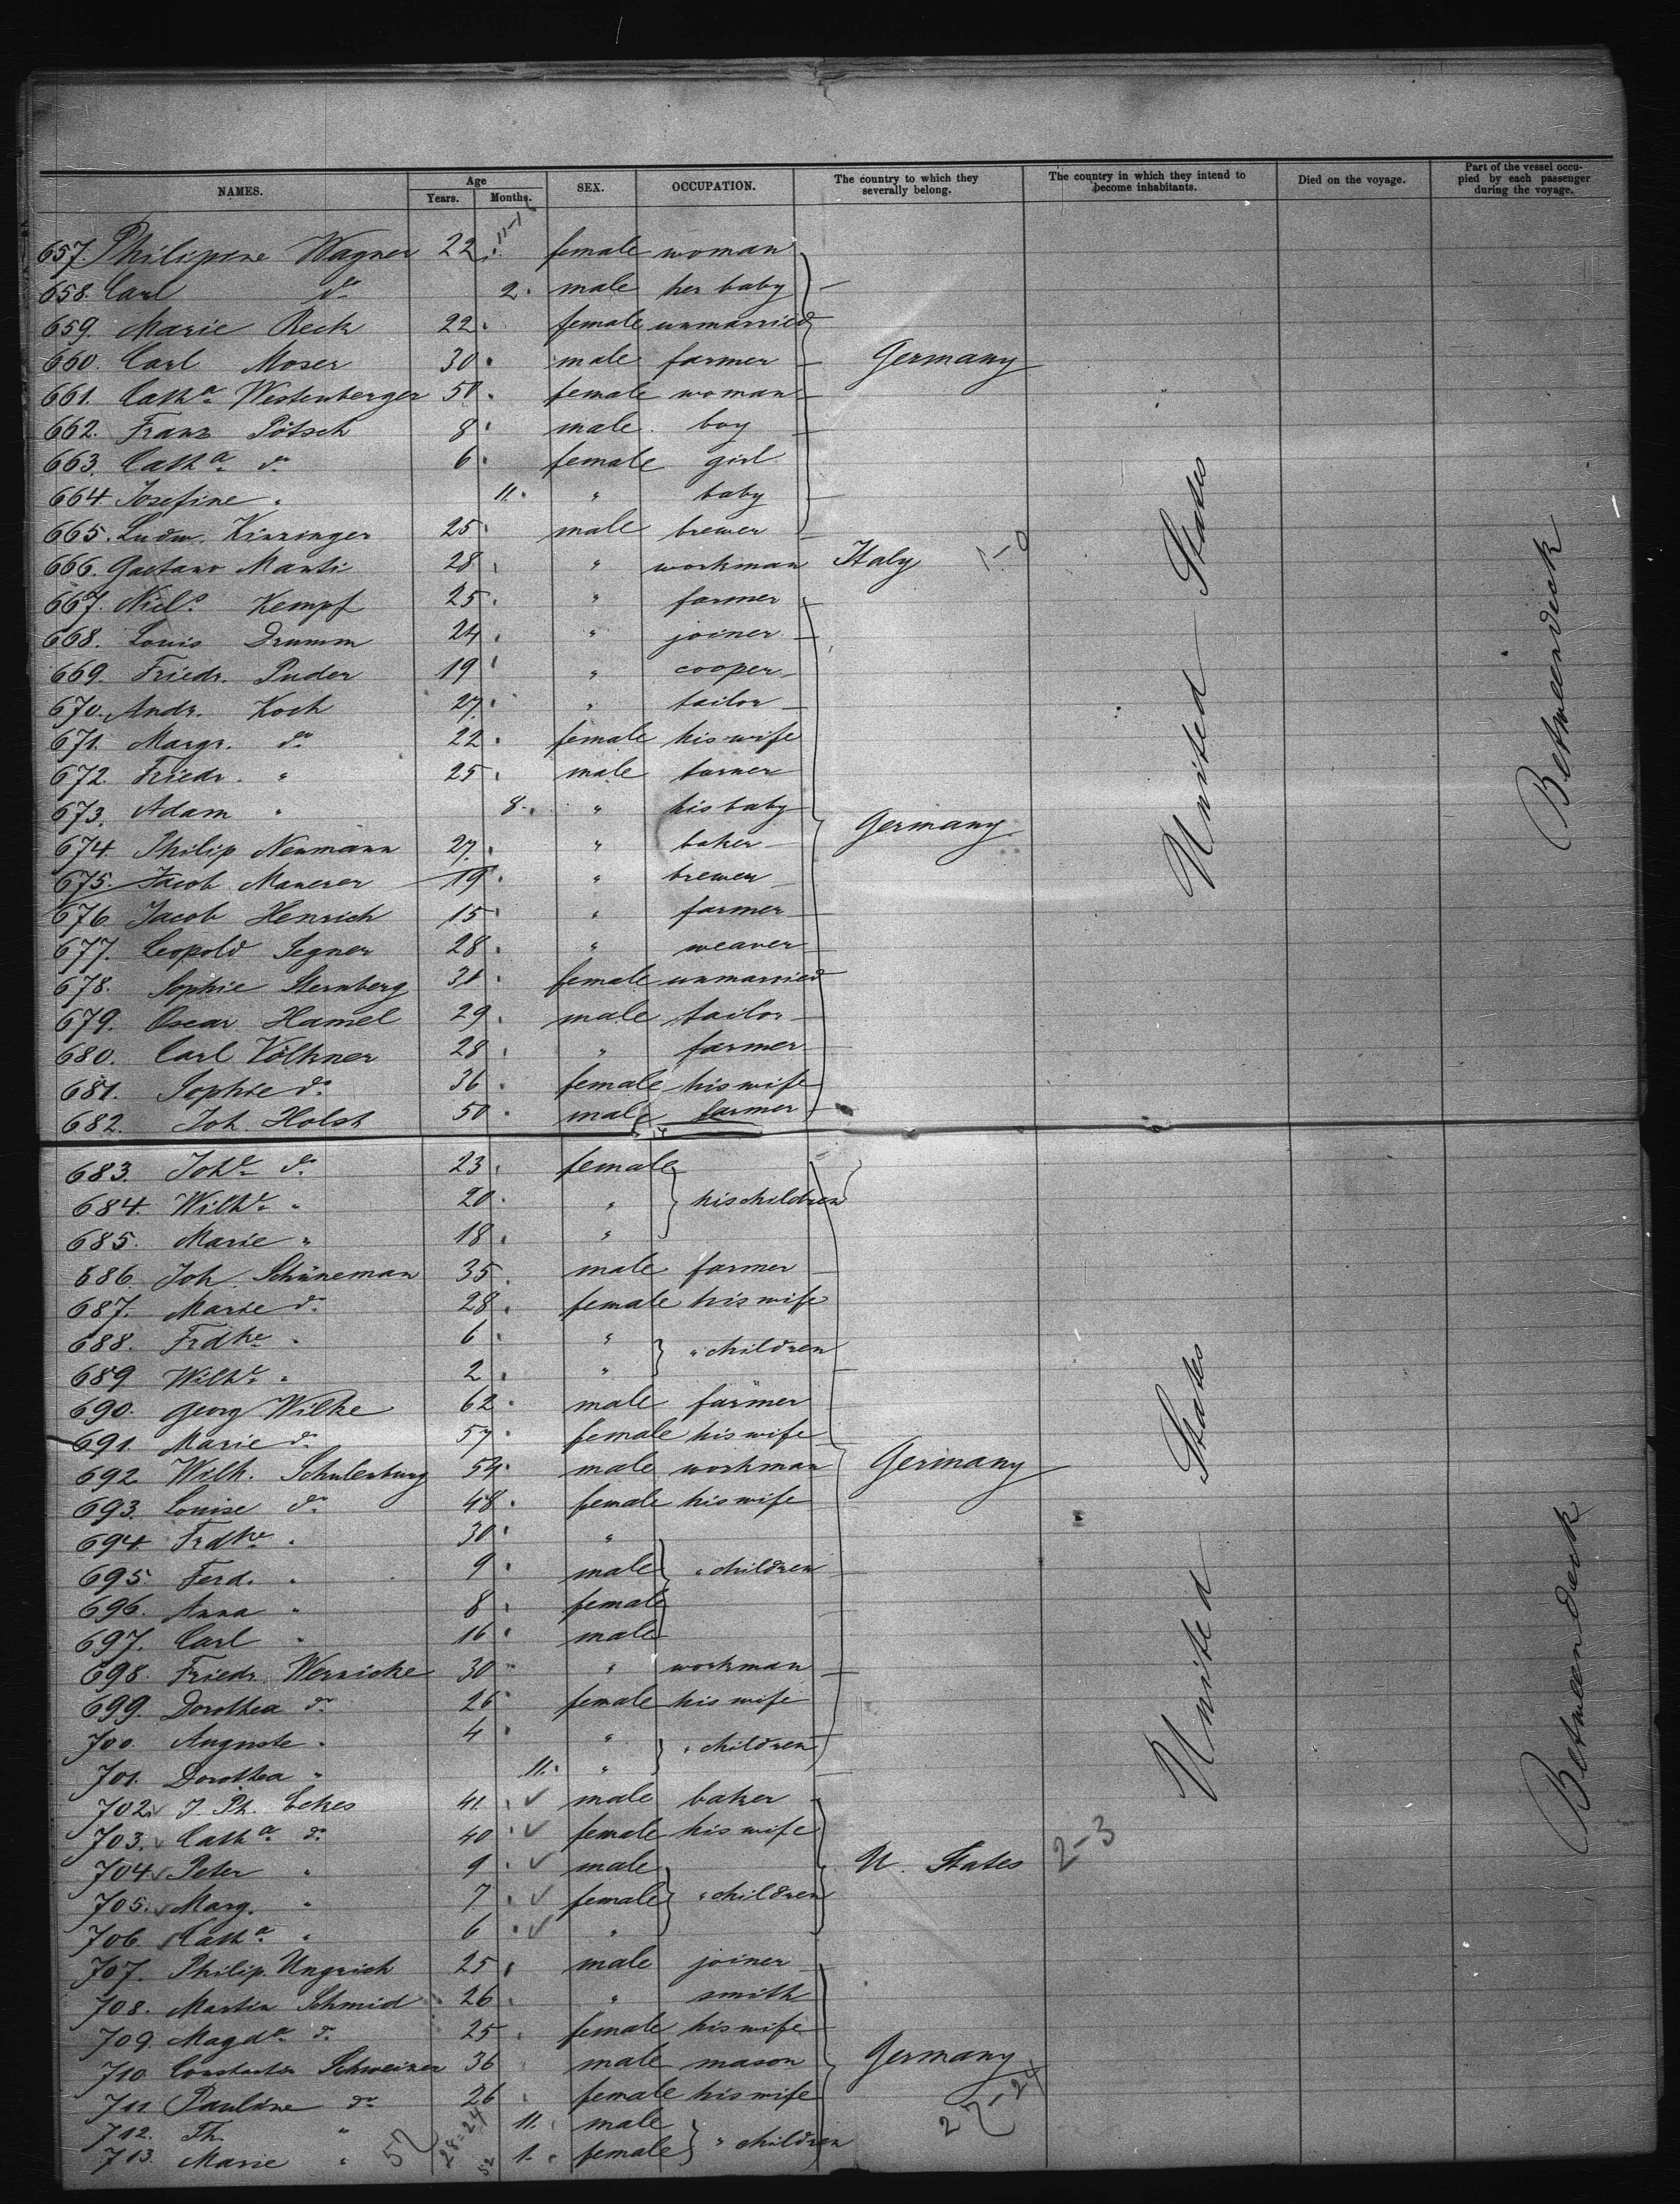 NAMES. Age Years. Months. SEX. OCCUPATION. The country to which they severally belong. The country in which they intend to become inhabitants. Died on the voyage. Part of the vessel occupied by each passenger during the voyage.
657. Philipine Wagner 22 female woman
658. Carl do 2 male her baby
659. Marie Reck 22 female unmarried
660. Carl Moser 30 male farmer Germany
661. Catha Westenberger 50 female woman
662. Franz Pötsch 8 male boy
663. Catha do 6 female girl
664. Josefine " 11 " baby
665. Ludw. Kinzinger 25 male brewer
666. Gaetano Manti 28 " workman Italy 1-0
667. Nicls Kempf 25 " farmer
668. Louis Drumm 24 " joiner
669. Friedr. Puder 19 " cooper
670. Andr. Koch 27 " tailor
671. Margr. do 22 female his wife
672. Friedr. " 25 male turner
673. Adam " 8 " his baby
674. Philip Neumann 27 " baker Germany
675. Jacob Manerer 19 " brewer
676. Jacob Henrich 15 " farmer
677. Leopold Segner 28 " weaver
678. Sophie Sternberg 31 female unmarried
679. Oscar Hamel 29 male tailor
680. Carl Völkner 28 " farmer
681. Sophie do 36 female his wife
682. Joh. Holst 50 male farmer
United States
Betweendeck
683. Johe do 23 female
684. Wilhe " 20 " his children
685. Marie " 18 "
686. Joh. Schüneman 35 male farmer
687. Marie do 28 female his wife
688. Frdke " 6 " " children
689. Wilhe " 2 "
690. Georg Wilke 62 male farmer
691. Marie do 57 female his wife
692. Wilh. Schulenburg 54 male workman Germany
693. Louise do 48 female his wife
694. Frdke " 30 "
695. Ferd. " 9 male " children
696. Anna " 8 female
697. Carl " 16 male
698. Friedr. Wernicke 30 " workman
699. Dorothea do 26 female his wife
700. Auguste " 4 " " children
701. Dorothea " 11 "
702. J. Ph. Eckes 41 male baker
703. Catha do 40 female his wife
704. Peter " 9 male U. States 2-3
705. Marg. " 7 female " children
706. Catha " 6 "
707. Philip Ungrich 25 male joiner
708. Martin Schmid 26 " smith
709. Magda do 25 female his wife
710. Constantin Schweizer 36 male mason Germany
711. Pauline do 26 female his wife
712. Th. " 11 male
713. Marie " 1 female " children
27-24
28-24
52
United States
Betweendeck